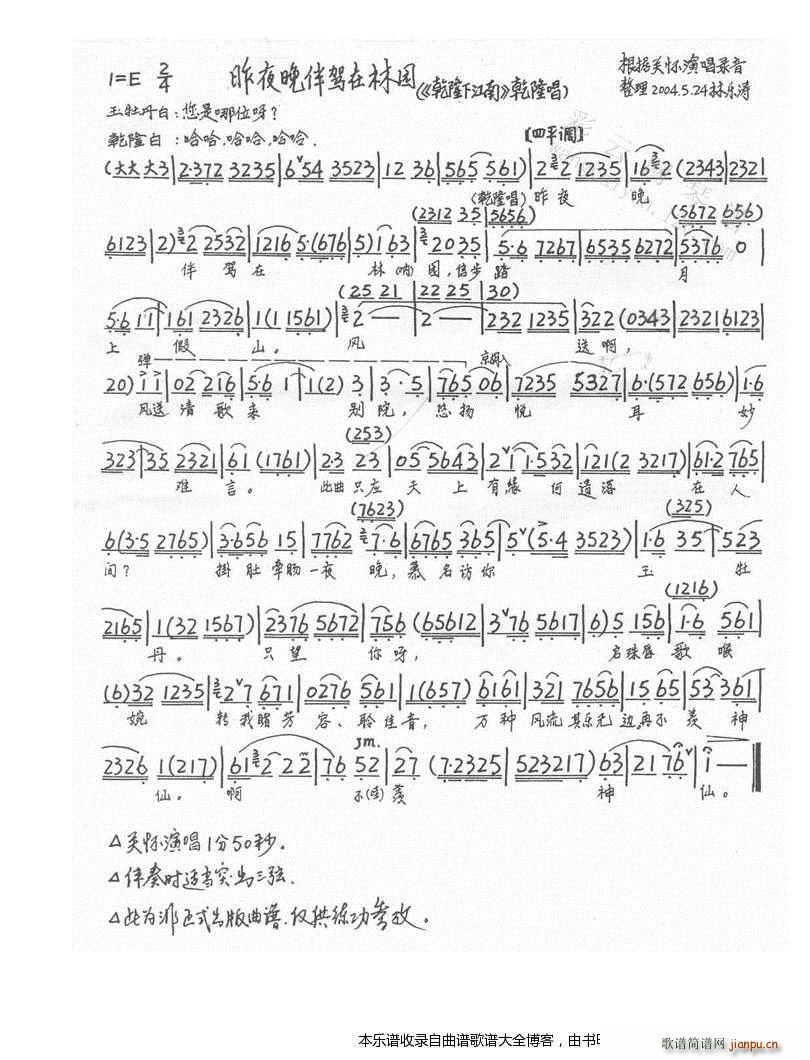 1=E 2/4 昨夜晚伴驾在林园(《乾隆下江南》乾隆唱) 根据关怀演唱录音
整理2004.5.24林乐涛
玉牡丹白:您是哪位呀?
乾隆白:哈哈,哈哈,哈哈. 【四平调】
(大大 大3|2·372 3235|6ˇ54 3523|12 36|565 561)|2 2 1235|16 2 (2343|2321
(乾隆唱)昨夜 晚
(2312 35|5656) (5672 656)
6123|2)2 2532|1216 5·(676|5)1 63|2035|5·6 7267|6535 6272|5376 0
伴驾在 林呐园,信步踏 月
(25 21|22 25|30)
5·6 1 1|161 2326|1(1 1561)|2—|2—|232 1235|322 (0343|2321 6123
上 假 山。 风 送啊,
20) 1 1|02 216|5·6 1|1(2) 3|3·5|765 06|7235 5327|6·(572 656)|1·6
风送清歌来 别院,悠扬悦 耳 妙
(253)
323|35 2321|61 (1761)|2·3 23|05 5643|2ˇ1 1·532|121(2 3217)|61·2 765
难言。 此曲只应天上有缘何遗落 在人
(7623) (325)
6(3·5 2765)|3·656 15|7762 7·6|6765 365|5ˇ(5·4 3523)|1·6 35|523
间? 挂肚牵肠一夜晚,慕名访你 玉牡
(1216)
2165|1(32 1567)|2376 5672|756 (65612|3ˇ76 5617|6)5 156|1·6 561
丹。 只望你呀, 启珠唇歌喉
(6)32 1235|2ˇ7 671|0276 561|1(657) 6161|321 7656|15 65|53 361
婉 转我睹芳容、聆佳音, 万种风流其乐无边再不羡神
jm.
2326 1(217)|61 2 2 2|76 52|27 (7·2325|523217) 63|217 6ˇ|1—
仙。 啊 不(哇)羡 神 仙。
△关怀演唱1分50秒.
△伴奏时适当突出三弦.
△此为非正式出版曲谱.仅供练功参考。
本乐谱收录自曲谱歌谱大全博客,由书
歌谱简谱网
jianpu.cn